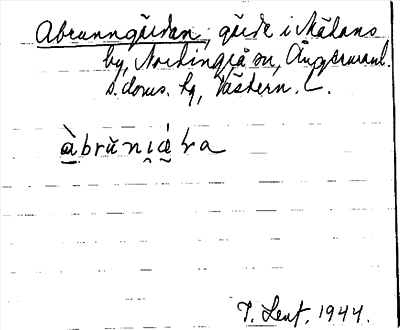 Abrunngärdan, gärde i Mädans
by, Nordingrå sn, Ångermanl.
s. doms. hg, Västern. L.
àbrŭnιǽra
T. Lent. 1944.